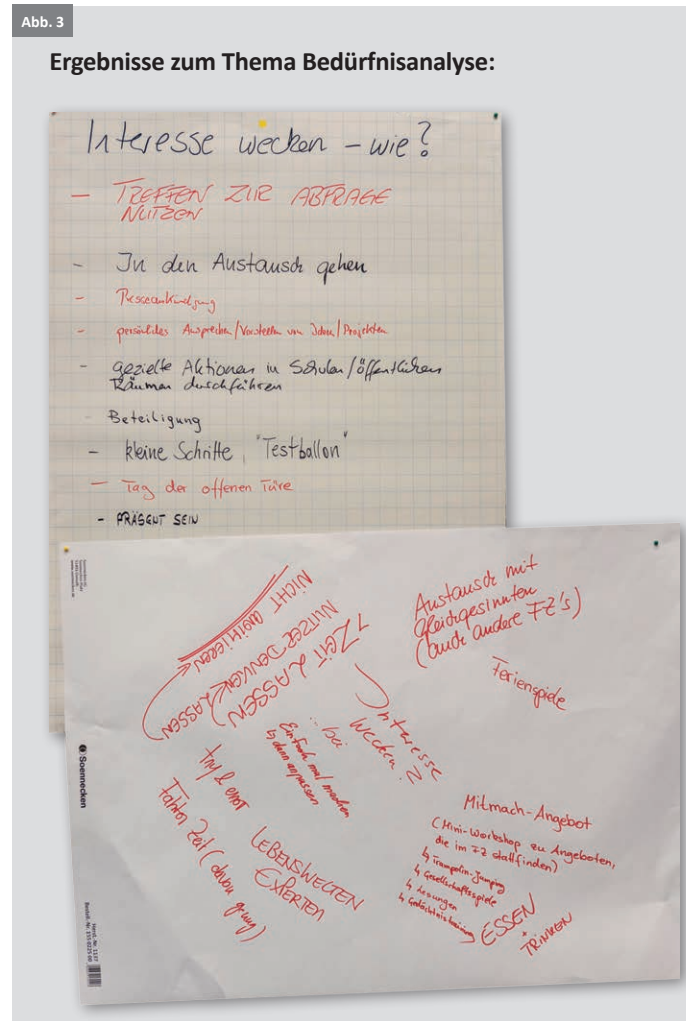 Abb. 3
Ergebnisse zum Thema Bedürfnisanalyse:
Interesse wecken – wie?
– TREFFEN ZUR ABFRAGE
NUTZEN
– In den Austausch gehen
– Presseankündigung
– persönliches Ansprechen/Vorstellen von Ideen/Projekten
– gezielte Aktionen in Schulen/öffentlichen
Räumen durchführen
– Beteiligung
– kleine Schritte, "Testballon"
– Tag der offenen Türe
– PRÄSENT SEIN
Austausch mit
Gleichgesinnten
(auch andere FZ's)
Ferienspiele
ZEIT LASSEN
NUTZER DENKEN LASSEN
NICHT
Interesse
wecken?
... bei
Einfach mal machen
↳ dann anpassen
try & error
Zeit (davon genug)
LEBENSWELTEN
EXPERTEN
Mitmach-Angebot
(Mini-Workshop zu Angeboten,
die im FZ stattfinden)
↳ Trampolin-Jumping
↳ Gesellschaftsspiele
↳ Lesungen
↳ Gedächtnistraining
ESSEN
+ TRINKEN
Soennecken